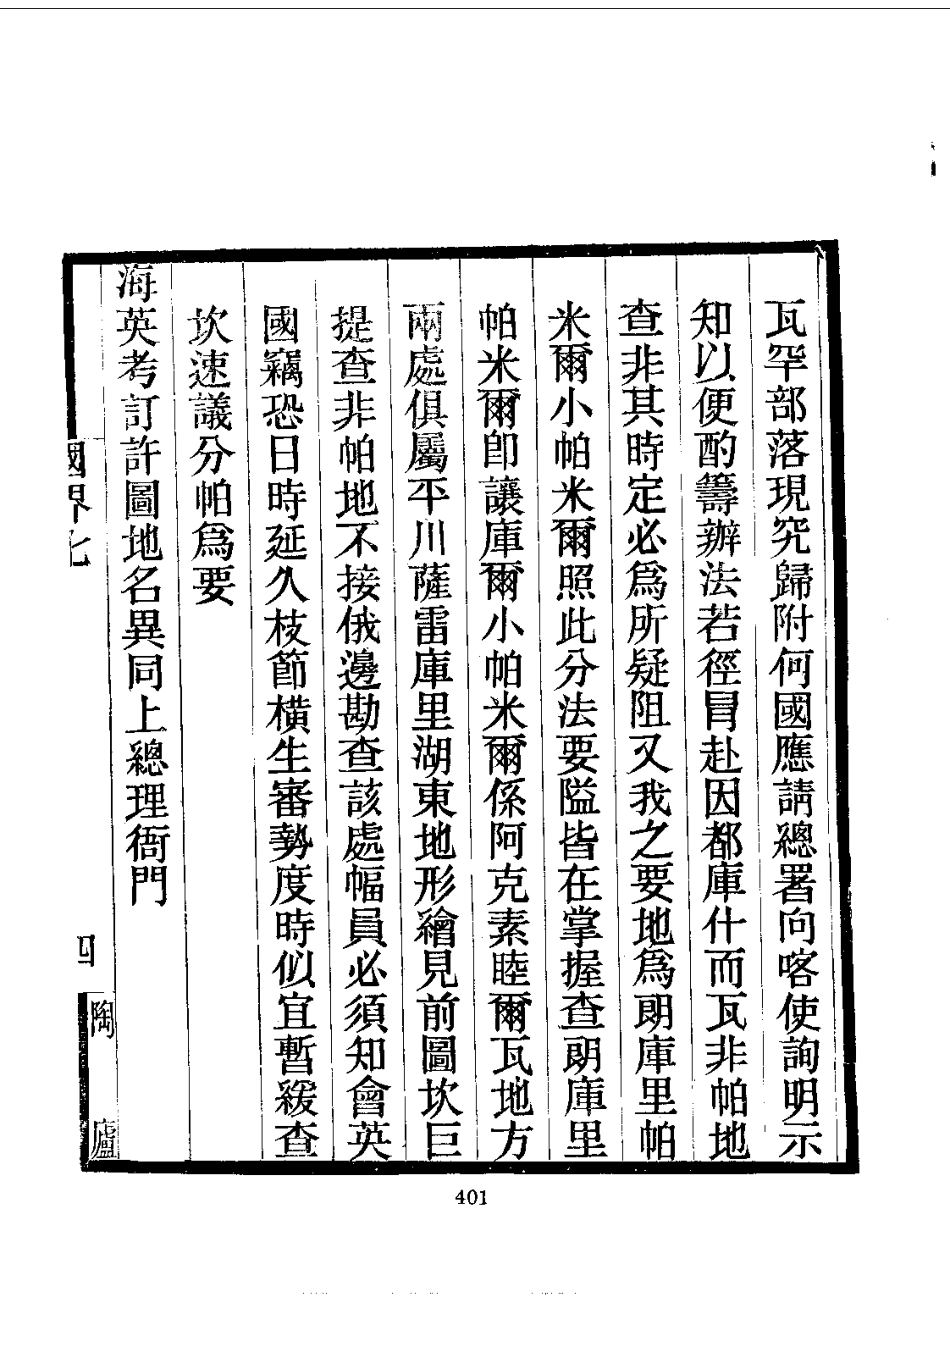 瓦罕部落現究歸附何國應請總署向喀使詢明示
知以便酌籌辦法若徑冒赴因都庫什而瓦非帕地
查非其時定必爲所疑阻又我之要地爲朗庫里帕
米爾小帕米爾照此分法要隘皆在掌握查朗庫里
帕米爾卽讓庫爾小帕米爾係阿克素睦爾瓦地方
兩處俱屬平川薩雷庫里湖東地形繪見前圖坎巨
提查非帕地不接俄邊勘查該處幅員必須知會英
國竊恐日時延久枝節橫生審勢度時似宜暫緩查
坎速議分帕爲要
海英考訂許圖地名異同上總理衙門
國界七
四
陶廬
401